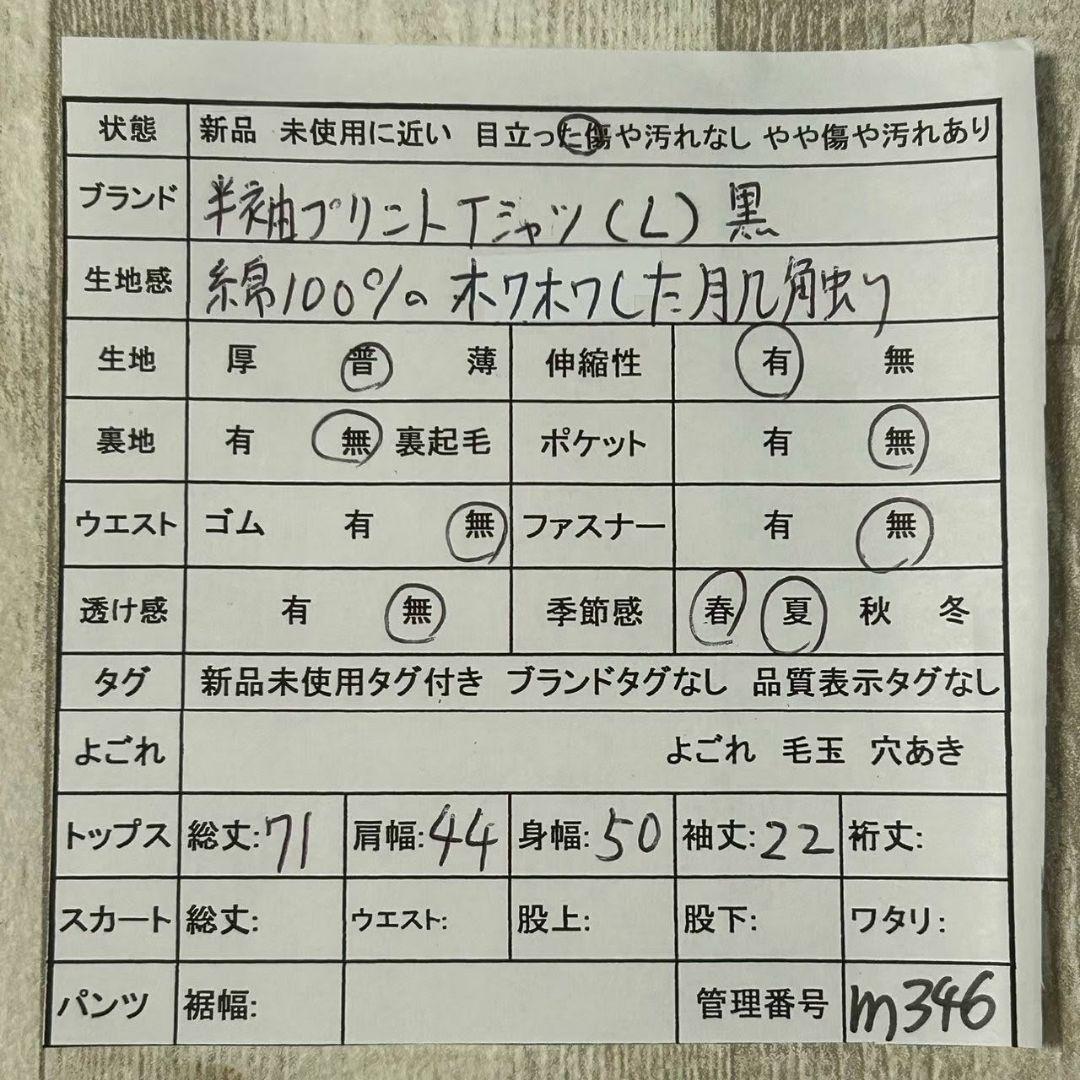 状態 新品 未使用に近い 目立った傷や汚れなし やや傷や汚れあり
ブランド 半袖プリントTシャツ(L)黒
生地感 綿100%のホワホワした肌触り
生地 厚 普 薄 伸縮性 有 無
裏地 有 無 裏起毛 ポケット 有 無
ウエスト ゴム 有 無 ファスナー 有 無
透け感 有 無 季節感 春 夏 秋 冬
タグ 新品未使用タグ付き ブランドタグなし 品質表示タグなし
よごれ よごれ 毛玉 穴あき
トップス 総丈:71 肩幅:44 身幅:50 袖丈:22 裄丈:
スカート 総丈: ウエスト: 股上: 股下: ワタリ:
パンツ 裾幅: 管理番号 m346